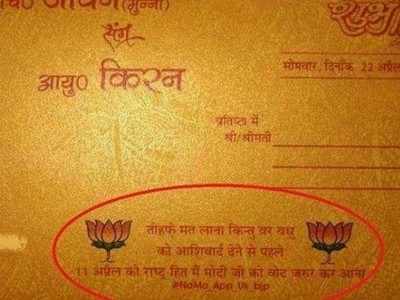 चि० जीवन (मुन्ना)
संग
आयु० किरन
सोमवार, दिनांक 22 अप्रैल
प्रतिष्ठा में
श्री/श्रीमती
तोहफे मत लाना किन्तु वर वधु
को आशिर्वाद देने से पहले
11 अप्रैल को राष्ट्र हित में मोदी जी को वोट जरुर कर आना
#NaMo App Uk bjp